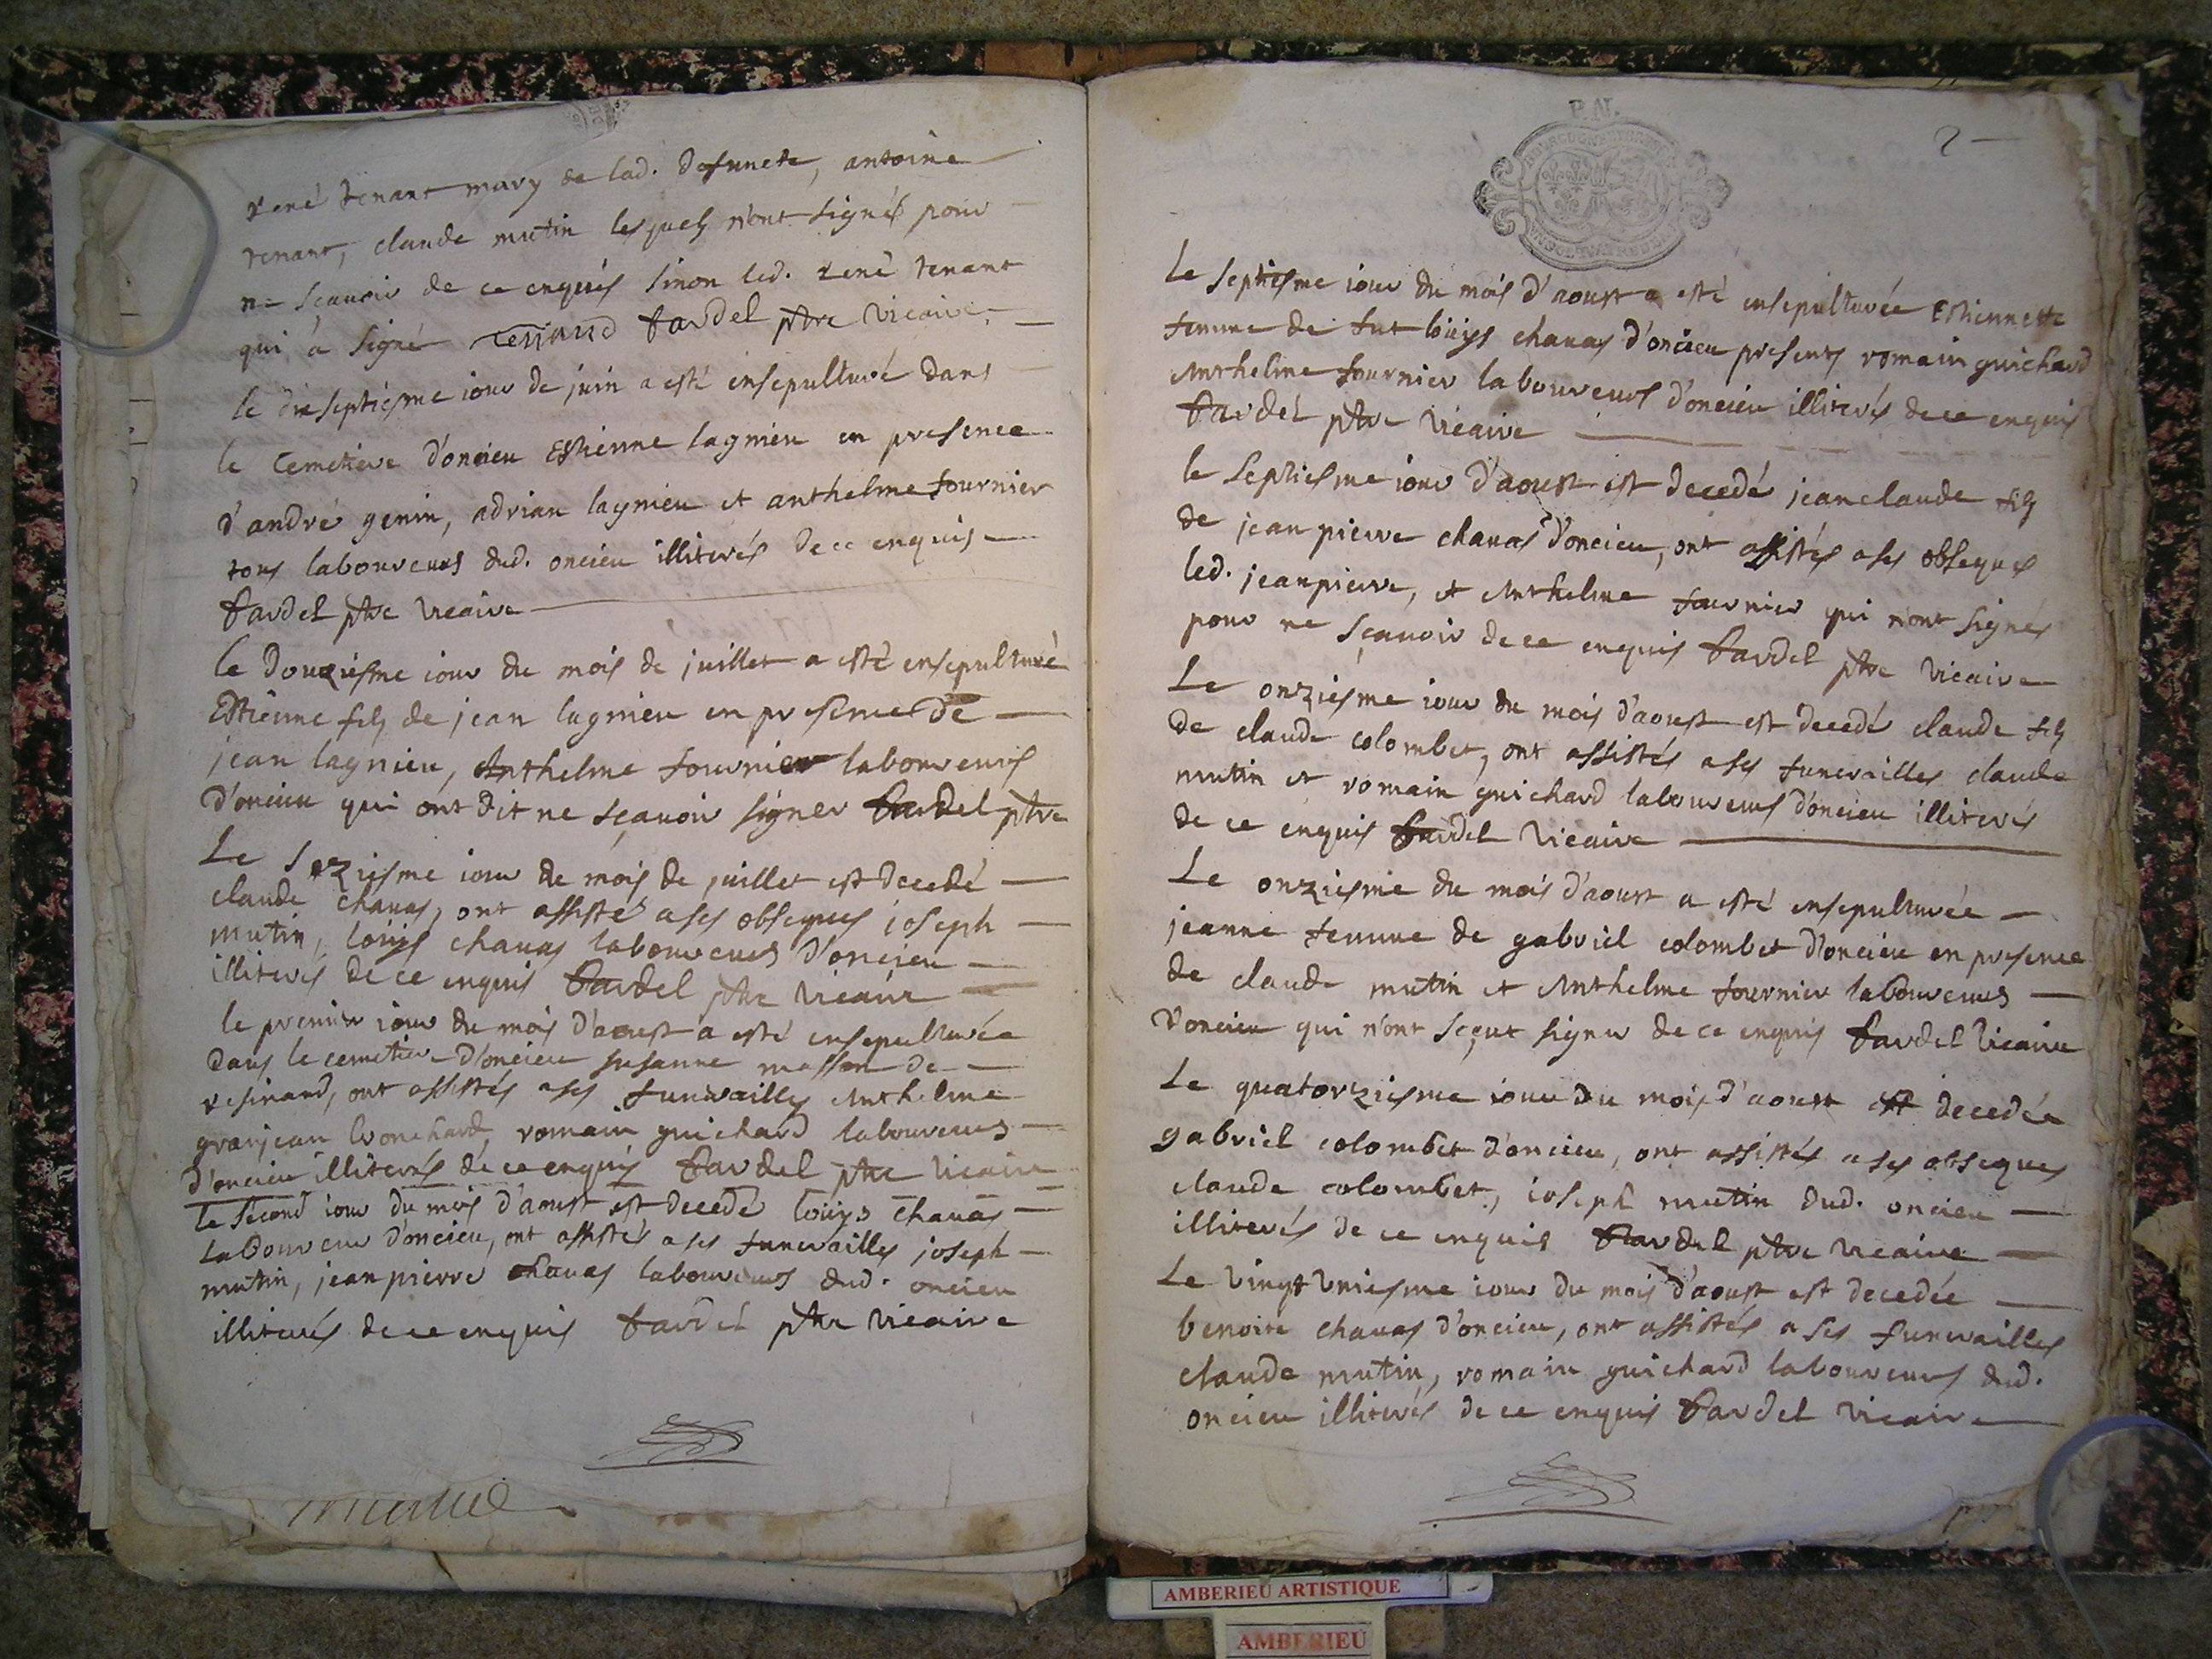 rené tenant mary de lad. defuncte, antoine
tenant, claude mutin lesquels n'ont signés pour
ne sçavoir de ce enquis sinon led. rené tenant
qui a signé tenand tardel ptre vicaire
le dixseptiesme iour de juin a esté ensepulturé dans
le cemetiere d'oncieu Estienne lagnieu en presence
d'andré genin, adrian lagnieu et anthelme fournier
tous laboureurs dud. oncieu illiterés de ce enquis
tardel ptre vicaire
le douziesme iour du mois de juillet a esté ensepulturé
Estienne fils de jean lagnieu en presence de
jean lagnieu, Anthelme fournier laboureurs
d'oncieu qui ont dit ne sçavoir signer tardel ptre
Le seziesme iour du mois de juillet est decedé
claude chavas, ont assisté a ses obseques ioseph
mutin, louys chavas laboureurs d'oncieu
illiterés de ce enquis tardel ptre vicaire
le premier iour du mois d'aoust a esté ensepulturée
dans le cemetiere d'oncieu susanne masson de
resinand, ont assistés a ses funerailles Anthelme
granjean bronchard, romain guichard laboureurs
d'oncieu illiterés de ce enquis tardel ptre vicaire
le second iour du mois d'aoust est decedé louys chavas
laboureur d'oncieu, ont assistés a ses funerailles joseph
mutin, jean pierre chavas laboureurs dud. oncieu
illiterés de ce enquis tardel ptre vicaire
P.N.
2
Le septiesme iour du mois d'aoust a esté ensepulturée Estiennette
femme de fut louys chavas d'oncieu presents romain guichard
Anthelme fournier laboureurs d'oncieu illiterés de ce enquis
tardel ptre vicaire
le septiesme iour d'aoust est decedé jean claude fils
de jean pierre chavas d'oncieu, ont assistés a ses obseques
led. jean pierre, et Anthelme fournier qui n'ont signés
pour ne sçavoir de ce enquis tardel ptre vicaire
Le onziesme iour du mois d'aoust est decedé claude fils
de claude colombet, ont assistés a ses funerailles claude
mutin et romain guichard laboureurs d'oncieu illiterés
de ce enquis tardel vicaire
Le onziesme du mois d'aoust a esté ensepulturée
jeanne femme de gabriel colombet d'oncieu en presence
de claude mutin et Anthelme fournier laboureurs
d'oncieu qui n'ont sçeut signer de ce enquis tardel vicaire
Le quatorziesme iour du mois d'aoust est decedée
gabriel colombet d'oncieu, ont assistés a ses obseques
claude colombet, ioseph mutin dud. oncieu
illiterés de ce enquis tardel ptre vicaire
Le vingt uniesme iour du mois d'aoust est decedée
benoite chavas d'oncieu, ont assistés a ses funerailles
claude mutin, romain guichard laboureurs dud.
oncieu illiterés de ce enquis tardel vicaire
AMBERIEU ARTISTIQUE
AMBERIEU